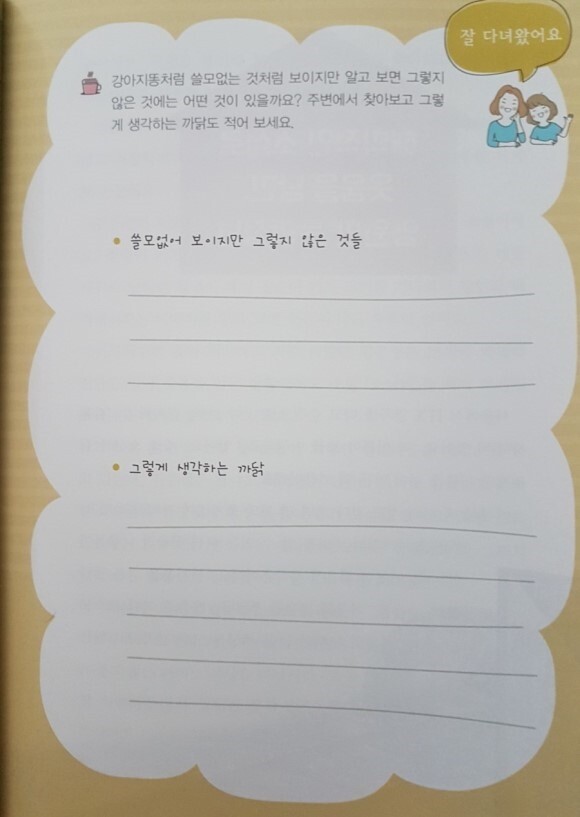 잘 다녀왔어요
강아지똥처럼 쓸모없는 것처럼 보이지만 알고 보면 그렇지
않은 것에는 어떤 것이 있을까요? 주변에서 찾아보고 그렇
게 생각하는 까닭도 적어 보세요.
• 쓸모없어 보이지만 그렇지 않은 것들
• 그렇게 생각하는 까닭